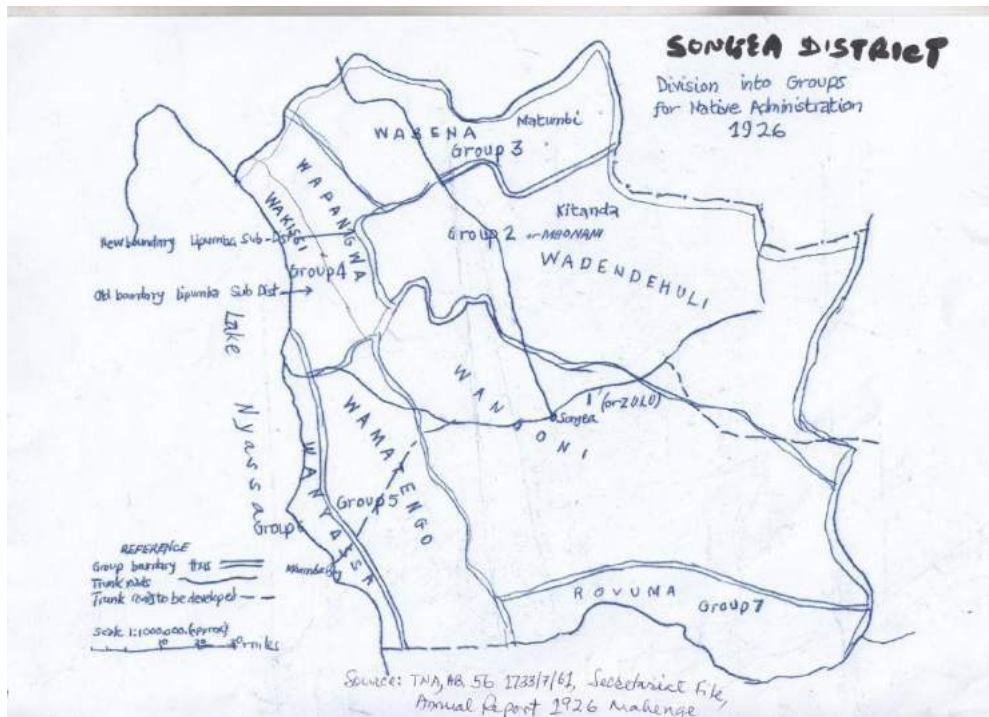 SONGEA DISTRICT
Division into Groups
for Native Administration
1926
WABENA
Matumbi
Group 3
WAPANGWA
WAKISSI
Kitanda
Group 2 or MBONANI
New boundary Lipumba Sub-Dist
WADENDEHULI
Group 4
Old boundary Lipumba Sub Dist
Lake Nyassa
WANGONI
1 (or ZOLO)
Songea
WAMATENGO
WANYASSA
Group 5
Group 6
REFERENCE
Group boundary thus
Trunk roads
Trunk roads to be developed
Scale 1:1000,000 (approx)
10 20 30 miles
ROVUMA
Group 7
Source: TNA, AB 56 1733/7/61, Secretariat File,
Annual Report 1926 Mahenge